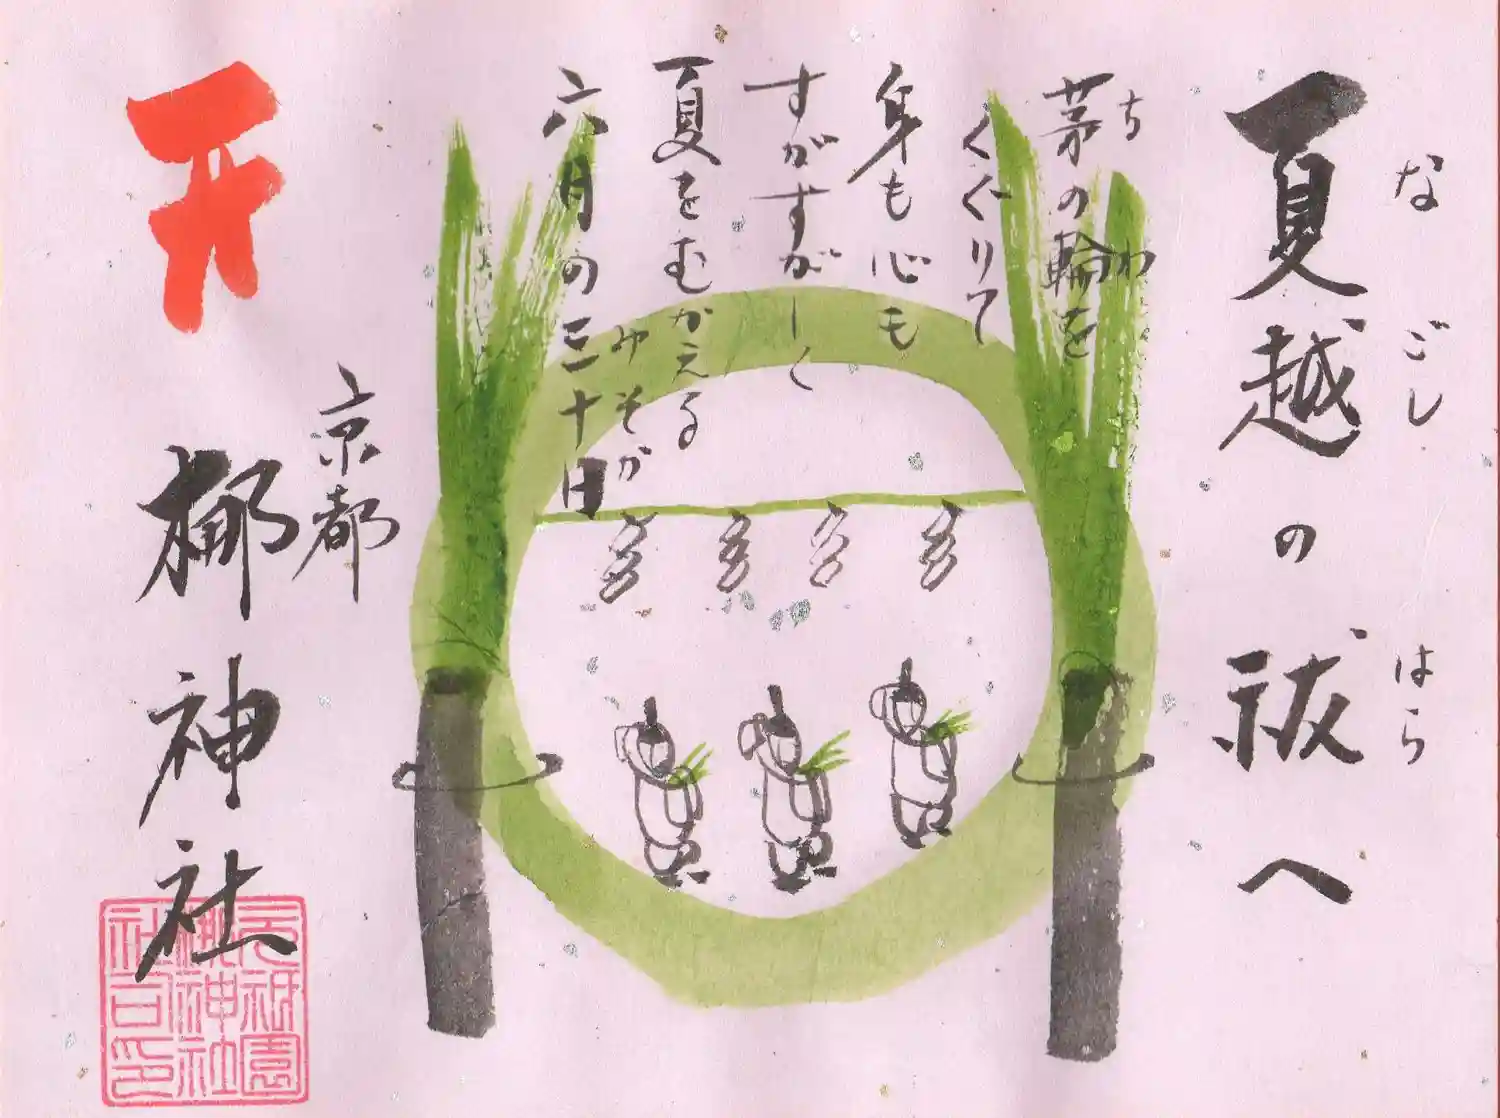 夏越の祓へ
なごし はら
茅の輪を
ち わ
くぐりて
身も心も
すがすがしく
夏をむかえる
六月の三十日
みそか
京都
梛神社
元祇園
梛神社
社司印